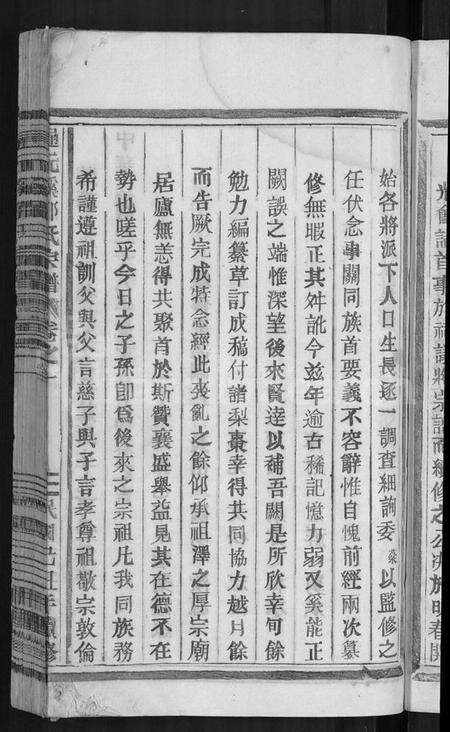 始各將派下人口生長逐一調查細詢委榮以監修之
任伏念事關同族首要義不容辭惟自愧前經兩次纂
修無暇正其舛訛今茲年逾古稀記憶力弱又奚能正
闕誤之端惟深望後來賢達以補吾闕是所欣幸旬餘
勉力編纂草訂成稿付諸梨棗幸得共同協力越月餘
而告厥完成特念經此喪亂之餘仰承祖澤之厚宗廟
居廬無恙得共聚首於斯贊襄盛舉益見其在德不在
勢也嗟乎今日之子孫卽爲後來之宗祖凡我同族務
希謹遵祖訓父與父言慈子與子言孝尊祖敬宗敦倫